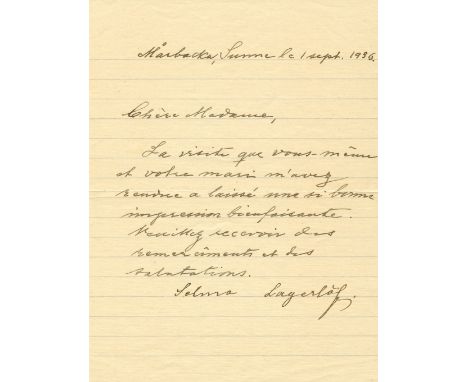 Mårbacka, Sunne le 1 sept. 1936.
Chère Madame,
La visite que vous-même
et votre mari m'avez
rendue a laissé une si bonne
impression bienfaisante.
Veuillez recevoir des
remerciments et des
salutations.
Selma Lagerlöf.